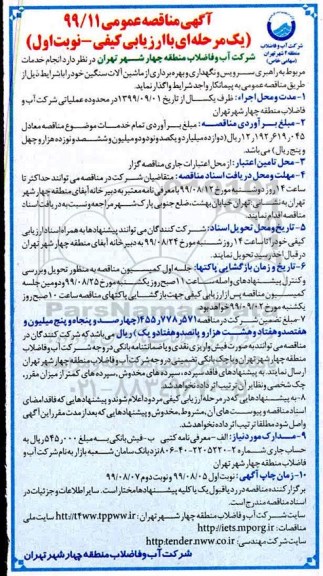 آگهی مناقصه عمومی ۹۹/۱۱
(یک مرحله ای با ارزیابی کیفی - نوبت اول)
شرکت آب و فاضلاب
منطقه ۴ شهر تهران
(سهامی خاص)
شرکت آب و فاضلاب منطقه چهار شهر تهران در نظر دارد انجام خدمات
مربوط به راهبری سرویس و نگهداری و بهره برداری از ماشین آلات سنگین خود را با شرایط ذیل از
طریق مناقصه عمومی به پیمانکار واجد شرایط واگذار نماید.
۱- مدت و محل اجراء: ظرف یکسال از تاریخ ۱۳۹۹/۰۹/۰۱ در محدوده عملیاتی شرکت آب و
فاضلاب منطقه چهار شهر تهران
۲- مبلغ برآوردی مناقصه: مبلغ برآوردی تمام خدمات موضوع مناقصه معادل
۱۲,۱۹۲,۶۱۹,۰۴۵ ریال (دوازده میلیارد و یکصد و نود و دو میلیون و ششصد و نوزده هزار و چهل
و پنج ریال) می باشد.
۳- محل تامین اعتبار: از محل اعتبارات جاری مناقصه گزار
۴- مهلت و محل دریافت اسناد مناقصه: متقاضیان شرکت در مناقصه می توانند حداکثر تا
ساعت ۱۴ روز دوشنبه مورخ ۹۹/۰۸/۱۲ با معرفی نامه معتبر به دبیرخانه آبفای منطقه چهار شهر
تهران به نشانی تهران خیابان بهشت، ضلع جنوبی پارک شهر مراجعه و نسبت به دریافت اسناد
مناقصه اقدام نمایند.
۵- تاریخ و محل تحویل اسناد: شرکت کنندگان می توانند پیشنهادها به همراه اسناد ارزیابی
کیفی خود را تا ساعت ۱۴ روز شنبه مورخ ۹۹/۰۸/۲۴ به دبیرخانه آبفای منطقه چهار شهر تهران
در قبال اخذ رسید تحویل نمایند.
۶- تاریخ و زمان بازگشایی پاکتها: جلسه اول کمیسیون مناقصه به منظور تحویل و بررسی
و کنترل پیشنهادهای واصله ساعت ۱۱ صبح روز یکشنبه مورخ ۹۹/۰۸/۲۵ و دومین جلسه
کمیسیون مناقصه پس از ارزیابی کیفی جهت بازگشایی پاکتهای مناقصه ساعت ۱۰ صبح روز
یکشنبه مورخ ۹۹/۰۹/۰۲ خواهد بود.
۷- مبلغ تضمین شرکت در مناقصه ۴۵۵,۷۷۸,۵۷۱ (چهارصد و پنجاه و پنج میلیون و
هفتصد و هفتاد و هشت هزار و پانصد و هفتاد و یک) ریال می باشد که شرکت کنندگان در
مناقصه می توانند به صورت فیش واریزی نقدی و یا ضمانتنامه بانکی در وجه شرکت آب و فاضلاب
منطقه چهار شهر تهران و یا چک بانکی تضمینی در وجه شرکت آب و فاضلاب منطقه چهار شهر تهران
ارسال نمایند. به پیشنهادهای فاقد سپرده، سپرده های مخدوش، سپرده های کمتر از میزان مقرر،
چک شخصی و نظایر آن ترتیب اثر داده نخواهد شد.
۸- به پیشنهادهایی که در مرحله ارزیابی کیفی مردود اعلام شوند و پیشنهادهایی که فاقد امضای
اسناد مناقصه و پیوست های آن، مشروط، مخدوش و پیشنهادهایی که بعد از مدت مقرر این آگهی
واصل شود مطلقا ترتیب اثر داده نخواهد شد.
۹- مدارک مورد نیاز: الف - معرفی نامه کتبی ب - فیش بانکی به مبلغ ۵۴۵,۰۰۰ ریال به
نزد بانک سامان شعبه بازار به نام شرکت آب و
فاضلاب منطقه چهار شهر تهران
۱۰- زمان چاپ آگهی: نوبت اول ۹۹/۰۸/۰۵ و نوبت دوم ۹۹/۰۸/۰۷
برگزار کننده مناقصه در رد یا قبول یک یا کلیه پیشنهادها مختار است. سایر اطلاعات و جزئیات در
اسناد مناقصه مندرج است.
سایت شرکت آب و فاضلاب منطقه چهار شهر تهران: htt://t4ww.tppww.ir سایت ملی
مناقصات: http://iets.mporg.ir
سایت شرکت مهندسی: http:tender.nww.co.ir
شرکت آب و فاضلاب منطقه چهار شهر تهران